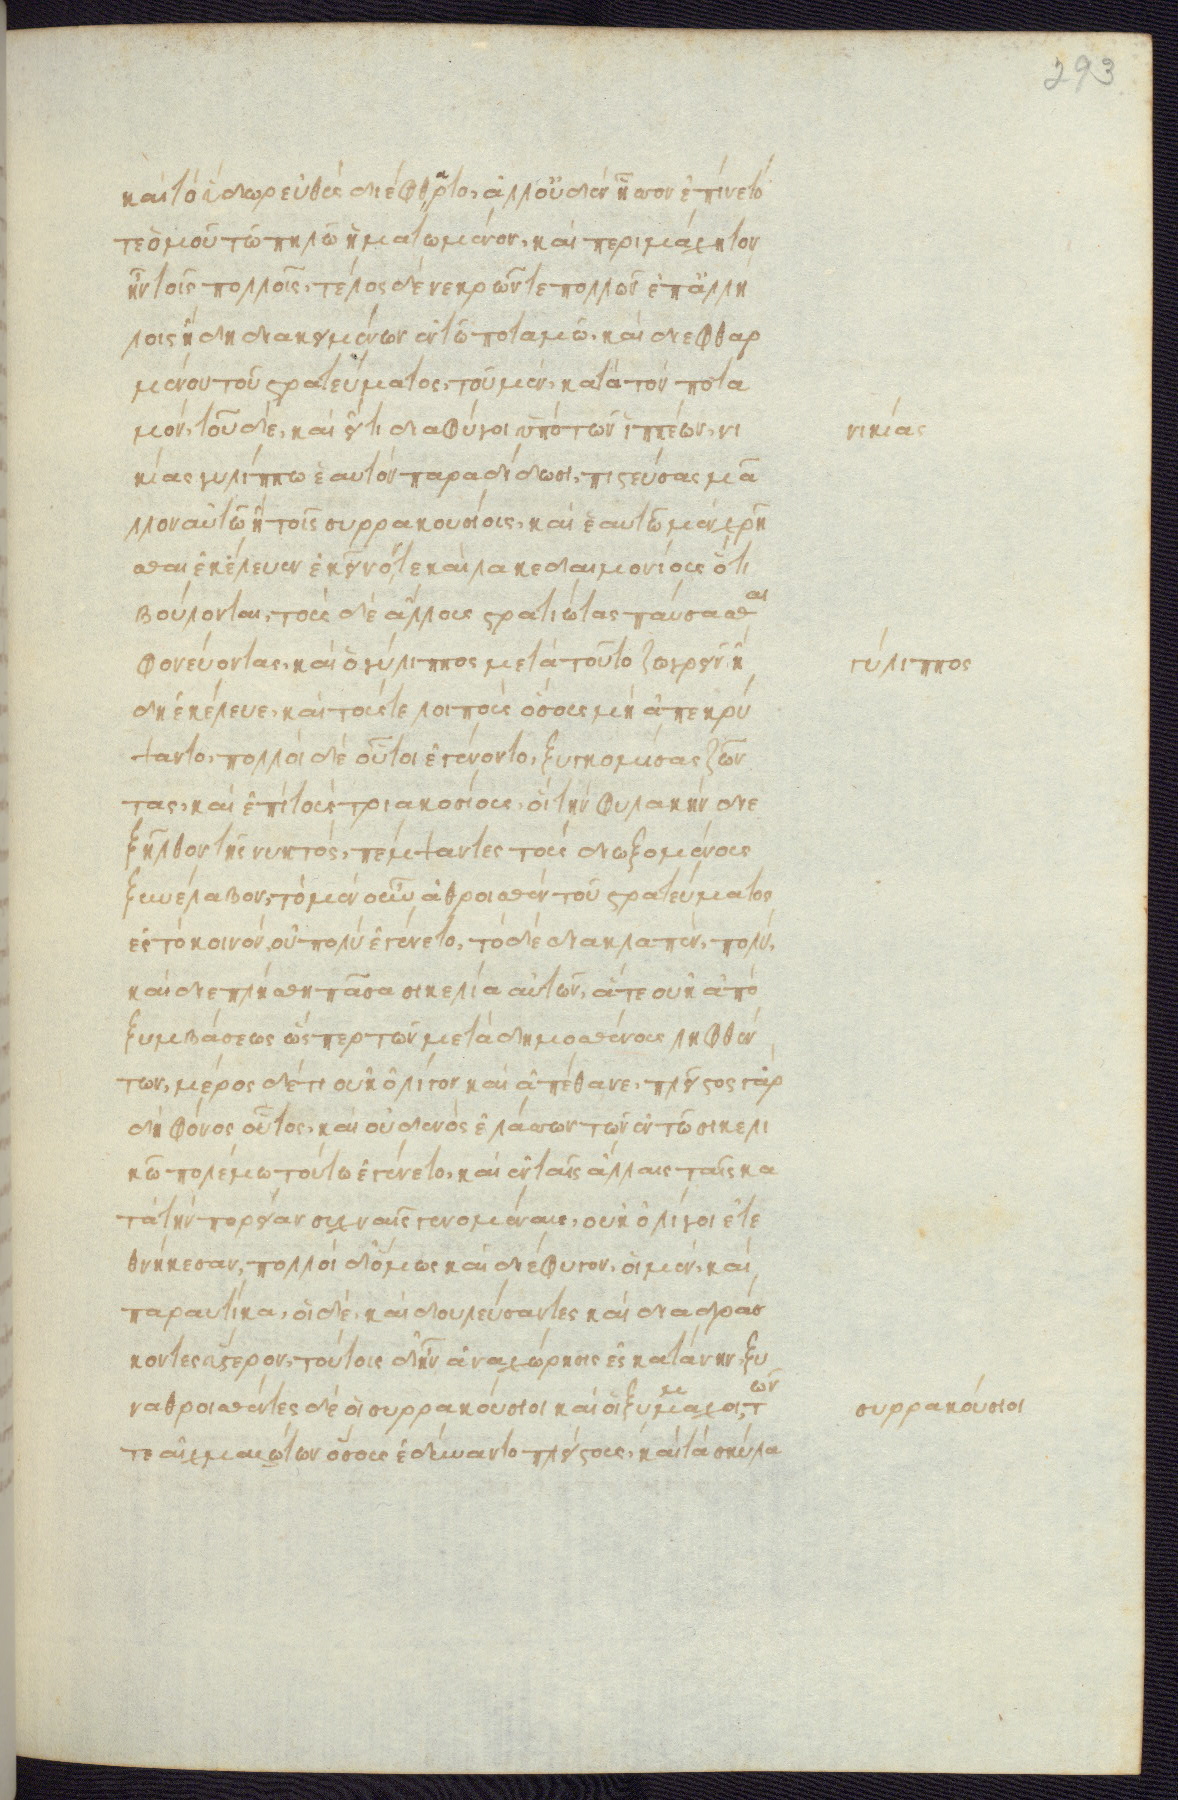 293
καὶ τὸ ὕδωρ εὐθὺς διέφθαρτο, ἀλλ' οὐδὲν ἧσσον ἐπίνετό
τε ὁμοῦ τῷ πηλῷ ᾑματωμένον, καὶ περιμάχητον
ἦν τοῖς πολλοῖς, τέλος δὲ νεκρῶν τε πολλῶν ἐπ' ἀλλή
λοις ἤδη διακειμένων ἐν τῷ ποταμῷ, καὶ διεφθαρ
μένου τοῦ στρατεύματος, τοῦ μὲν, κατὰ τὸν ποτα
μόν, τοῦ δὲ, καὶ εἴ τι διαφύγοι ὑπὸ τῶν ἱππέων, νι
νικίας
κίας γυλίππω ἑαυτὸν παραδίδωσι, πιστεύσας μᾶ
λλον αὐτῷ ἢ τοῖς συρρακουσίοις, καὶ ἑαυτῷ μὲν χρή
σθαι ἐκέλευεν ἐκεῖνόν τε καὶ λακεδαιμονίους ὅ τι
βούλονται, τοὺς δὲ ἄλλους στρατιώτας παύσασθαι
φονεύοντας, καὶ ὁ γύλιππος μετὰ τοῦτο ζωγρεῖν ἤ
γύλιππος
δη ἐκέλευε, καὶ τούς τε λοιποὺς ὅσους μὴ ἀπεκρύ
ψαντο, πολλοὶ δὲ οὗτοι ἐγένοντο, ξυγκομίσας ζῶν
τας, καὶ ἐπὶ τοὺς τριακοσίους, οἳ τὴν φυλακὴν διε
ξῆλθον τῆς νυκτός, πέμψαντες τοὺς διωξομένους
ξυνέλαβον, τὸ μὲν οὖν ἀθροισθὲν τοῦ στρατεύματος
ἐς τὸ κοινόν, οὐ πολὺ ἐγένετο, τὸ δὲ διακλαπὲν, πολύ,
καὶ διεπλήσθη πᾶσα σικελία αὐτῶν, ἅτε οὐκ ἀπὸ
ξυμβάσεως ὥσπερ τῶν μετὰ δημοσθένους ληφθέν
των, μέρος δέ τι οὐκ ὀλίγον καὶ ἀπέθανε, πλεῖστος γὰρ
δὴ φόνος οὗτος, καὶ οὐδενὸς ἐλάσσων τῶν ἐν τῷ σικελι
κῷ πολέμω τούτω ἐγένετο, καὶ ἐν ταῖς ἄλλαις ταῖς κα
τὰ τὴν πορείαν συχναῖς γενομέναις, οὐκ ὀλίγοι ἐτε
θνήκεσαν, πολλοὶ δ' ὅμως καὶ διέφυγον, οἱ μὲν, καὶ
παραυτίκα, οἱ δὲ, καὶ δουλεύσαντες καὶ διαδιδράσ
κοντες ὕστερον, τούτοις δ' ἦν ἀναχώρησις ἐς κατάνην, ξυ
ναθροισθέντες δὲ οἱ συρρακούσιοι καὶ οἱ ξύμμαχοι, τῶν
συρρακούσιοι
τε αἰχμαλώτων ὅσους ἐδύναντο πλείστους, καὶ τὰ σκῦλα